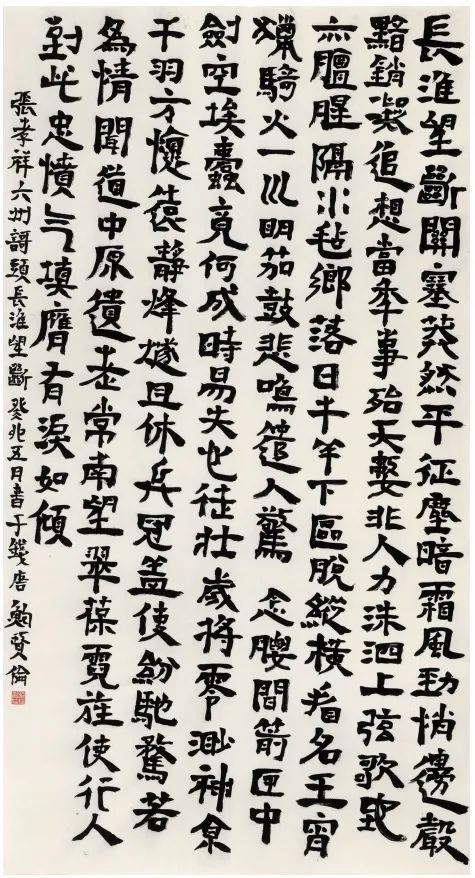 長淮望斷關塞莽然平征塵暗霜風勁悄邊聲
黯銷凝追想當秊事殆天數非人力洙泗上弦歌地
亦膻腥隔水毡鄉落日牛羊下區脫縱橫看名王宵
獵騎火一川明笳鼓悲鳴遣人驚 念腰間箭匣中
劍空埃蠹竟何成時易失心徒壯歲將零渺神京
干羽方懷遠靜烽燧且休兵冠蓋使紛馳騖若
為情聞道中原遺老常南望翠葆霓旌使行人
到此忠憤气填膺有淚如傾
張孝祥六州謌頭長淮望斷 癸卯五月書于錢唐 鮑賢倫